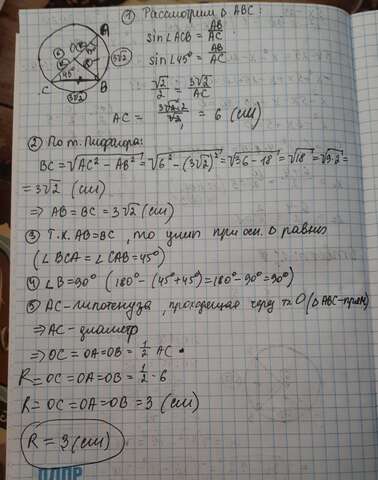 A
3√2
45°
C
B
3√2
① Рассмотрим Δ ABC:
sin∠ACB = AB/AC
sin∠45° = AB/AC
√2/2 = 3√2/AC
AC = 3√2·2/√2 = 6 (см)
② По т. Пифагора:
BC = √AC² - AB² = √6² - (3√2)² = √36 - 18 = √18 = √9·2 =
= 3√2 (см)
⇒ AB = BC = 3√2 (см)
③ Т.К. AB = BC, то углы при осн. Δ равны
(∠BCA = ∠CAB = 45°)
④ ∠B = 90° (180° - (45° + 45°) = 180° - 90° = 90°)
⑤ AC - гипотенуза, проходящая через т. O (Δ ABC - прям)
⇒ AC - диаметр
⇒ OC = OA = OB = 1/2 AC
R = OC = OA = OB = 1/2 · 6
R = OC = OA = OB = 3 (см)
R = 3 (см)